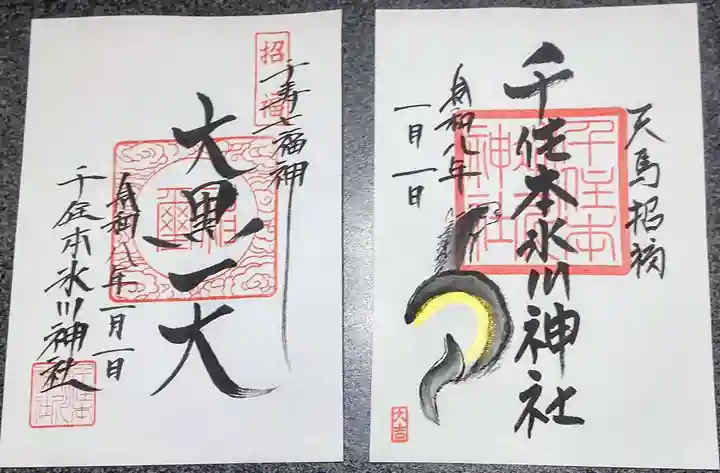 千寿七福神
招福
大黒天
令和八年一月一日
千住本氷川神社
天馬招福
千住本氷川神社
千住本
神社
令和八年
一月一日
大吉